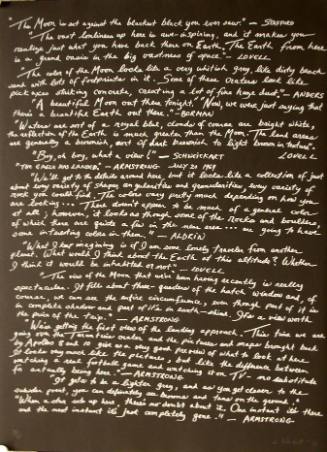 "The Moon is set against the blackest black you ever saw." — STAFFORD
"The vast loneliness up here is awe-inspiring, and it makes you
realize just what you have back there on Earth. The Earth from here
is a grand oasis in the big vastness of space." LOVELL
"The color of the Moon looks like a very whitish gray, like dirty beach
sand with lots of footprints in it. Some of these craters look like
pick axes striking concrete, creating a lot of fine haze dust." — ANDERS
"A beautiful Moon out there tonight." "Now, we were just saying that
there's a beautiful Earth out there." — BORMAN
"Waters are sort of a royal blue, clouds of course are bright white,
the reflection of the Earth is much greater than the Moon. The land areas
are generally a brownish, sort of dark brownish to light brown in texture."
LOVELL
"Boy, oh boy, what a view!" — SCHWEICKART
"THE EAGLE HAS LANDED" — ARMSTRONG JULY 20 1969
"We'll get to the details around here, but it looks like a collection of just
about every variety of shapes angularities and granularities, every variety of
rock you could find. The colors vary pretty much depending on how you
are looking.... There doesn't appear to be much of a general color
at all; however, it looks as though some of the rocks and boulders,
of which there are quite a few in the near area... are going to have
some interesting colors to them." — ALDRIN
"What I keep imagining is if I am some lonely traveler from another
planet. What would I think about the Earth at this altitude? Whether
I think it would be inhabited or not." — LOVELL
"The view of the Moon that we've been having recently is really
spectacular. It fills about three-quarters of the hatch window and, of
course, we can see the entire circumference, even though part of it is
in complete shadow and part of it's in earth-shine. It's a view worth
the price of the trip." — ARMSTRONG
"We're getting the first view of the landing approach. This time we are
going over the Taruntius crater and the pictures and maps brought back
by Apollos 8 and 10 give us a very good preview of what to look at here.
It looks very much like the pictures, but like the difference between
watching a real football game and watching it on TV — no substitute
for actually being here." — ARMSTRONG
"It gets to be a lighter gray, and as you get closer to the
subsolar point, you can definitely see browns and tans on the ground."
"When a star sets up here, there's no doubt about it. One instant it's there
and the next instant it's just completely gone." — ARMSTRONG